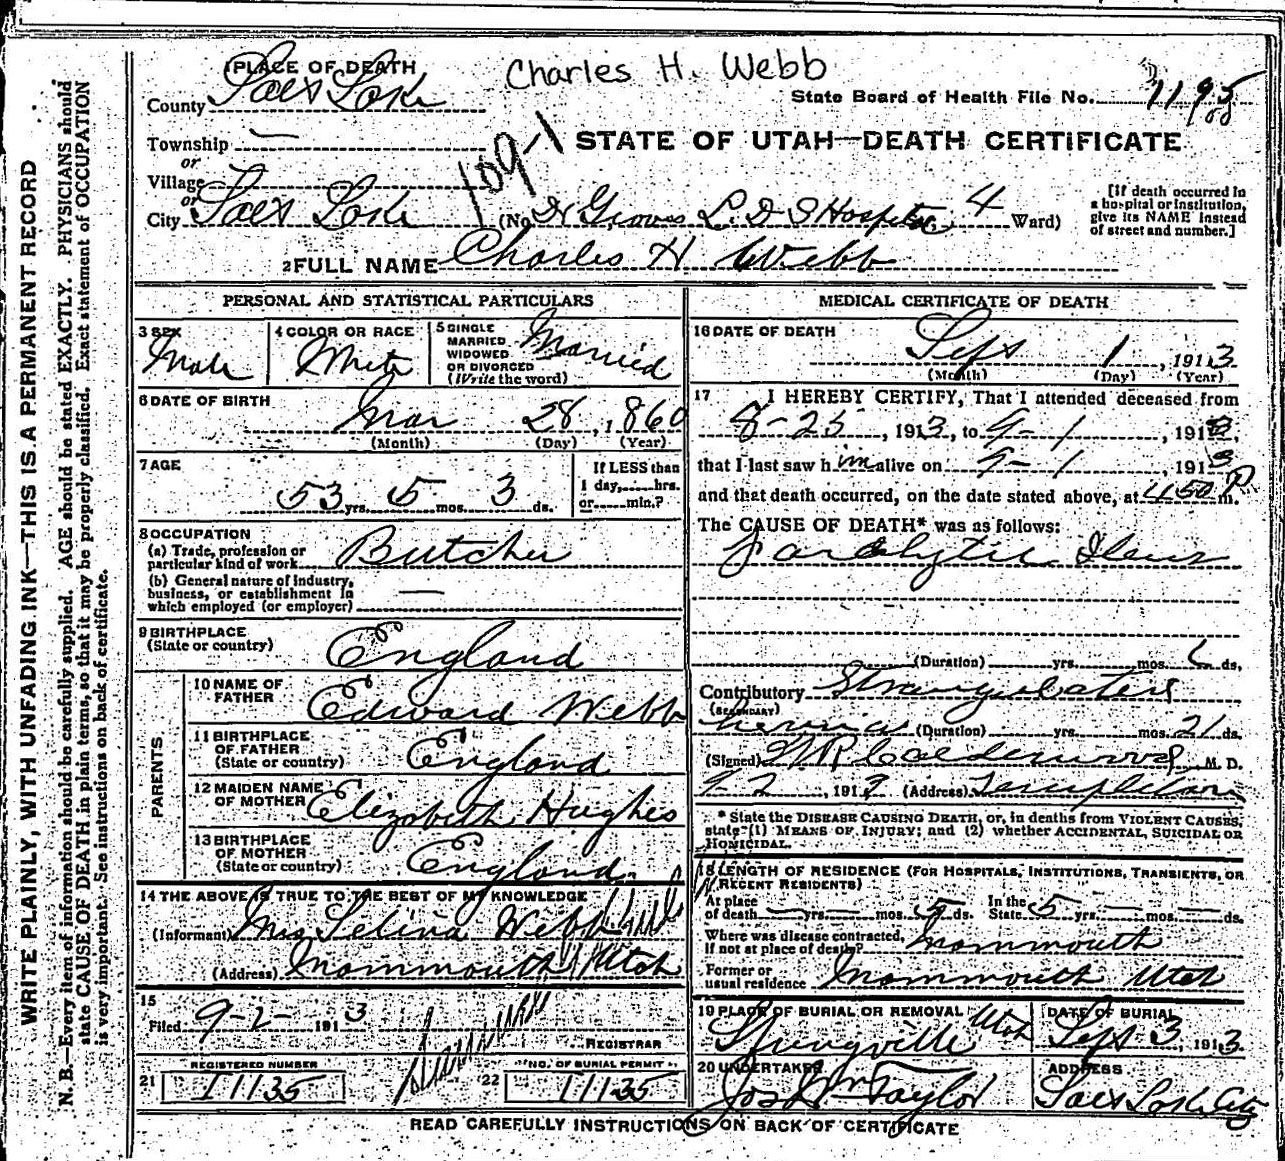 Charles H. Webb
1 PLACE OF DEATH
County Salt Lake
State Board of Health File No. 1195
Township —
STATE OF UTAH—DEATH CERTIFICATE
109-1
or
Village
or
City Salt Lake (No. Dr Groves L.D.S Hospital, 4 Ward)
[If death occurred in a hospital or institution, give its NAME instead of street and number.]
2 FULL NAME Charles H Webb
PERSONAL AND STATISTICAL PARTICULARS
3 SEX Male
4 COLOR OR RACE White
5 SINGLE MARRIED WIDOWED OR DIVORCED (Write the word) Married
6 DATE OF BIRTH Mar 28, 1860
(Month) (Day) (Year)
7 AGE 53 yrs. 5 mos. 3 ds.
If LESS than 1 day,......hrs. or......min.?
8 OCCUPATION
(a) Trade, profession or particular kind of work Butcher
(b) General nature of industry, business, or establishment in which employed (or employer) —
9 BIRTHPLACE (State or country) England
PARENTS
10 NAME OF FATHER Edward Webb
11 BIRTHPLACE OF FATHER (State or country) England
12 MAIDEN NAME OF MOTHER Elizabeth Hughes
13 BIRTHPLACE OF MOTHER (State or country) England
14 THE ABOVE IS TRUE TO THE BEST OF MY KNOWLEDGE
(Informant) Mrs Selina Webb
(Address) Mammouth Utah
15
Filed 9-2- 1913
REGISTRAR
REGISTERED NUMBER
21 11135
NO. OF BURIAL PERMIT
22 11135
MEDICAL CERTIFICATE OF DEATH
16 DATE OF DEATH Sept 1, 1913
(Month) (Day) (Year)
17 I HEREBY CERTIFY, That I attended deceased from
8-25, 1913, to 9-1, 1913,
that I last saw him alive on 9-1, 1913
and that death occurred, on the date stated above, at 450 P m.
The CAUSE OF DEATH* was as follows:
Paralytic Ileus
(Duration) yrs. mos. 6 ds.
Contributory Strangulated
(SECONDARY)
hernia (Duration) yrs. mos. 21 ds.
(Signed) Calderwood M. D.
9-2, 1913 (Address) Templeton
* State the DISEASE CAUSING DEATH, or, in deaths from VIOLENT CAUSES, state (1) MEANS OF INJURY; and (2) whether ACCIDENTAL, SUICIDAL OR HOMICIDAL.
18 LENGTH OF RESIDENCE (FOR HOSPITALS, INSTITUTIONS, TRANSIENTS, OR RECENT RESIDENTS)
At place of death — yrs. — mos. 5 ds. In the State 5 yrs. — mos. — ds.
Where was disease contracted, if not at place of death? Mammouth
Former or usual residence Mammouth Utah
19 PLACE OF BURIAL OR REMOVAL Springville Utah
DATE OF BURIAL Sept 3, 1913
20 UNDERTAKER Jos Wm Taylor
ADDRESS Salt Lake City
READ CAREFULLY INSTRUCTIONS ON BACK OF CERTIFICATE
WRITE PLAINLY, WITH UNFADING INK—THIS IS A PERMANENT RECORD
N. B.—Every item of information should be carefully supplied. AGE should be stated EXACTLY. PHYSICIANS should
state CAUSE OF DEATH in plain terms, so that it may be properly classified. Exact statement of OCCUPATION
is very important. See instructions on back of certificate.